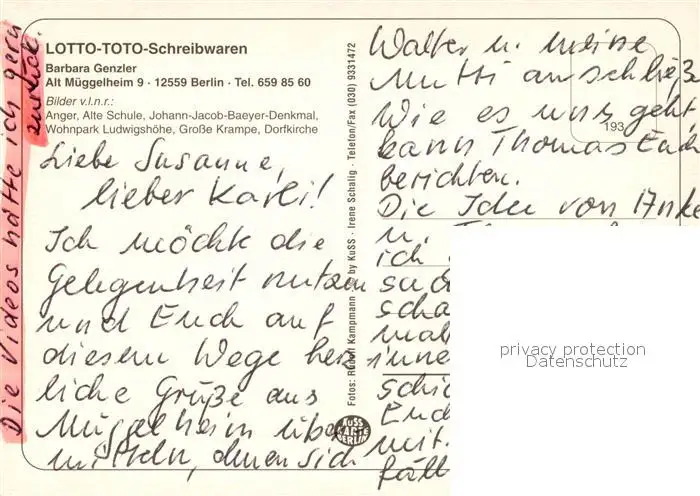 LOTTO-TOTO-Schreibwaren
Barbara Genzler
Alt Müggelheim 9 · 12559 Berlin · Tel. 659 85 60
Bilder v.l.n.r.:
Anger, Alte Schule, Johann-Jacob-Baeyer-Denkmal,
Wohnpark Ludwigshöhe, Große Krampe, Dorfkirche
Liebe Susanne,
lieber Karli!
Ich möchte die
Gelegenheit nutzen
und Euch auf
diesem Wege herz
liche Grüße aus
Müggelheim über
mitteln, denen sich
Walter u. meine
Mutti anschließ
Wie es uns geht,
kann Thomas Euch
berichten.
Die Idee von Anke
u.
ich
scha
mal
inne
schic
Euch
mit.
fäll
193
Fotos: Rudolf Kampmann © by KuSS · Irene Schalig · Telefon/Fax (030) 9331472
KUSS
KARTE
BERLIN
Die Videos hätte ich gern
zurück.
privacy protection
Datenschutz